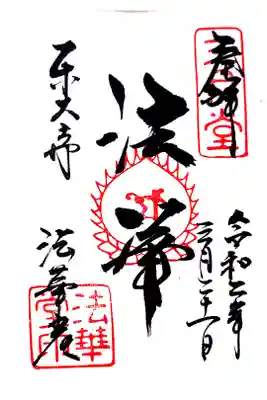 奉拝
令和二年
三月二十一日
法華
東大寺
法華堂
法華堂印